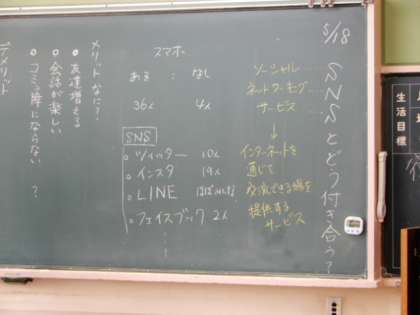 5/18
SNSとどう付き合う?
ソーシャル……
ネットワーキング……
サービス……
↓
インターネットを
通じて
交流できる場を
提供する
サービス
スマホ
ある : なし
36人 4人
SNS
・ツイッター 10人
・インスタ 19人
・LINE ほぼみんな
・フェイスブック 2人
メリットなに?
・友達増える
・会話が楽しい
・コミュ障にならない ?
デメリット
生活目標